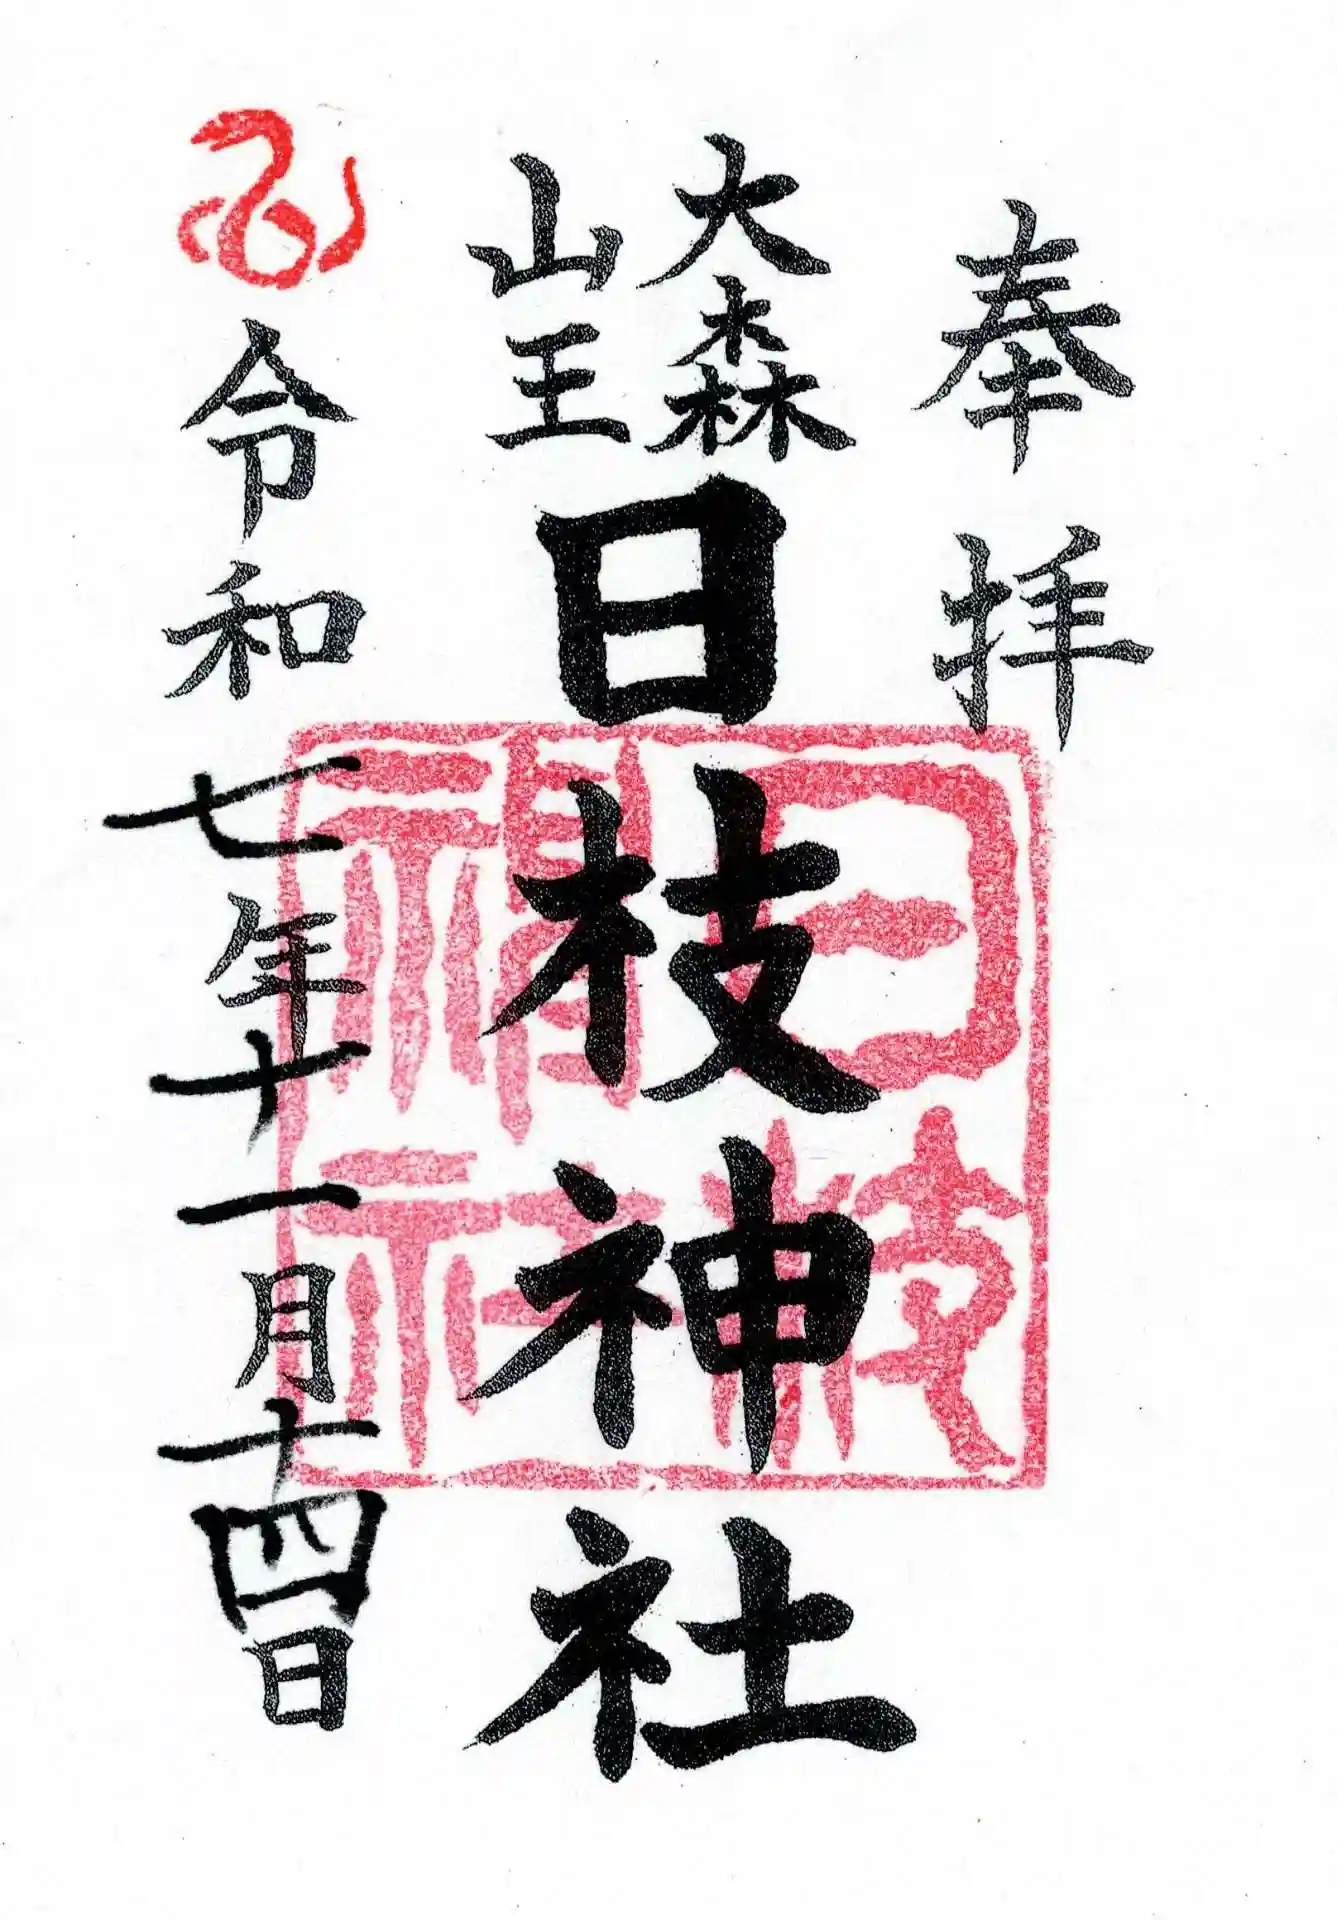 奉拝
大森
山王
日枝神社
日枝神社
令和七年十一月十四日